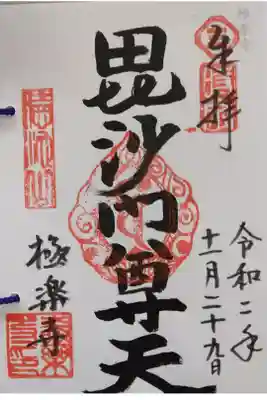 奉拝
令和二年
十一月二十九日
毘沙門尊天
極楽寺